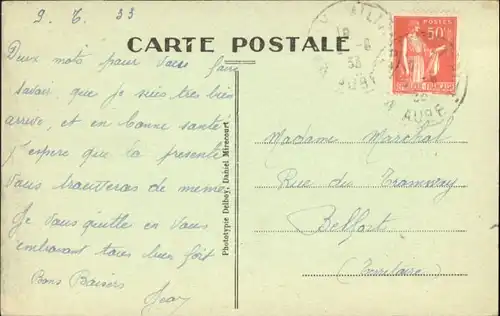 9. 6. 33
CARTE POSTALE
Deux mots pour vous faire
savoir que je suis très bien
arrivé, et en bonne santé
j'espère que la présente
vous trouveras de même
Je vous quitte en vous
embrassant tous bien fort
Bons Baisers
Jean
Phototypie Delboy, Daniel Mirecourt.
POSTES
50c
AUBE
Madame Marchal
Rue du Tramway
Belfort
(Territoire)